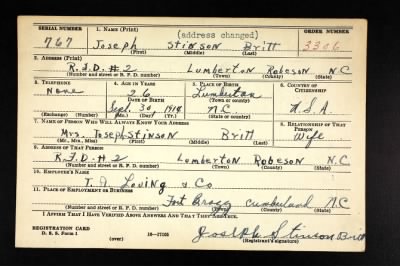 SERIAL NUMBER 1. NAME (Print) (address changed) ORDER NUMBER
767 Joseph Stinson Britt 3306
(First) (Middle) (Last)
2. ADDRESS (Print)
R.F.D. #2 Lumberton Robeson N.C
(Number and street or R. F. D. number) (Town) (County) (State)
3. TELEPHONE 4. AGE IN YEARS 5. PLACE OF BIRTH 6. COUNTRY OF CITIZENSHIP
None 26 Lumberton
DATE OF BIRTH (Town or county)
Sep. 30 1914 N.C. U.S.A
(Exchange) (Number) (Mo.) (Day) (Yr.) (State or country)
7. NAME OF PERSON WHO WILL ALWAYS KNOW YOUR ADDRESS 8. RELATIONSHIP OF THAT PERSON
Mrs. Joseph Stinson Britt Wife
(Mr., Mrs., Miss) (First) (Middle) (Last)
9. ADDRESS OF THAT PERSON
R.F.D. #2 Lumberton Robeson N.C
(Number and street or R. F. D. number) (Town) (County) (State)
10. EMPLOYER'S NAME
T. A. Loving & Co
11. PLACE OF EMPLOYMENT OR BUSINESS
Fort Bragg Cumberland N.C
(Number and street or R. F. D. number) (Town) (County) (State)
I AFFIRM THAT I HAVE VERIFIED ABOVE ANSWERS AND THAT THEY ARE TRUE.
REGISTRATION CARD
D. S. S. Form 1 (over) 16—17105 Joseph Stinson Britt
(Registrant's signature)